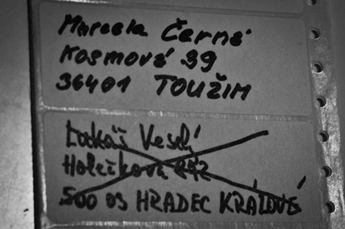 Marcela Černá
Kosmová 39
36401 TOUŽIM
Lukáš Veselý
Holečkova 442
500 03 HRADEC KRÁLOVÉ